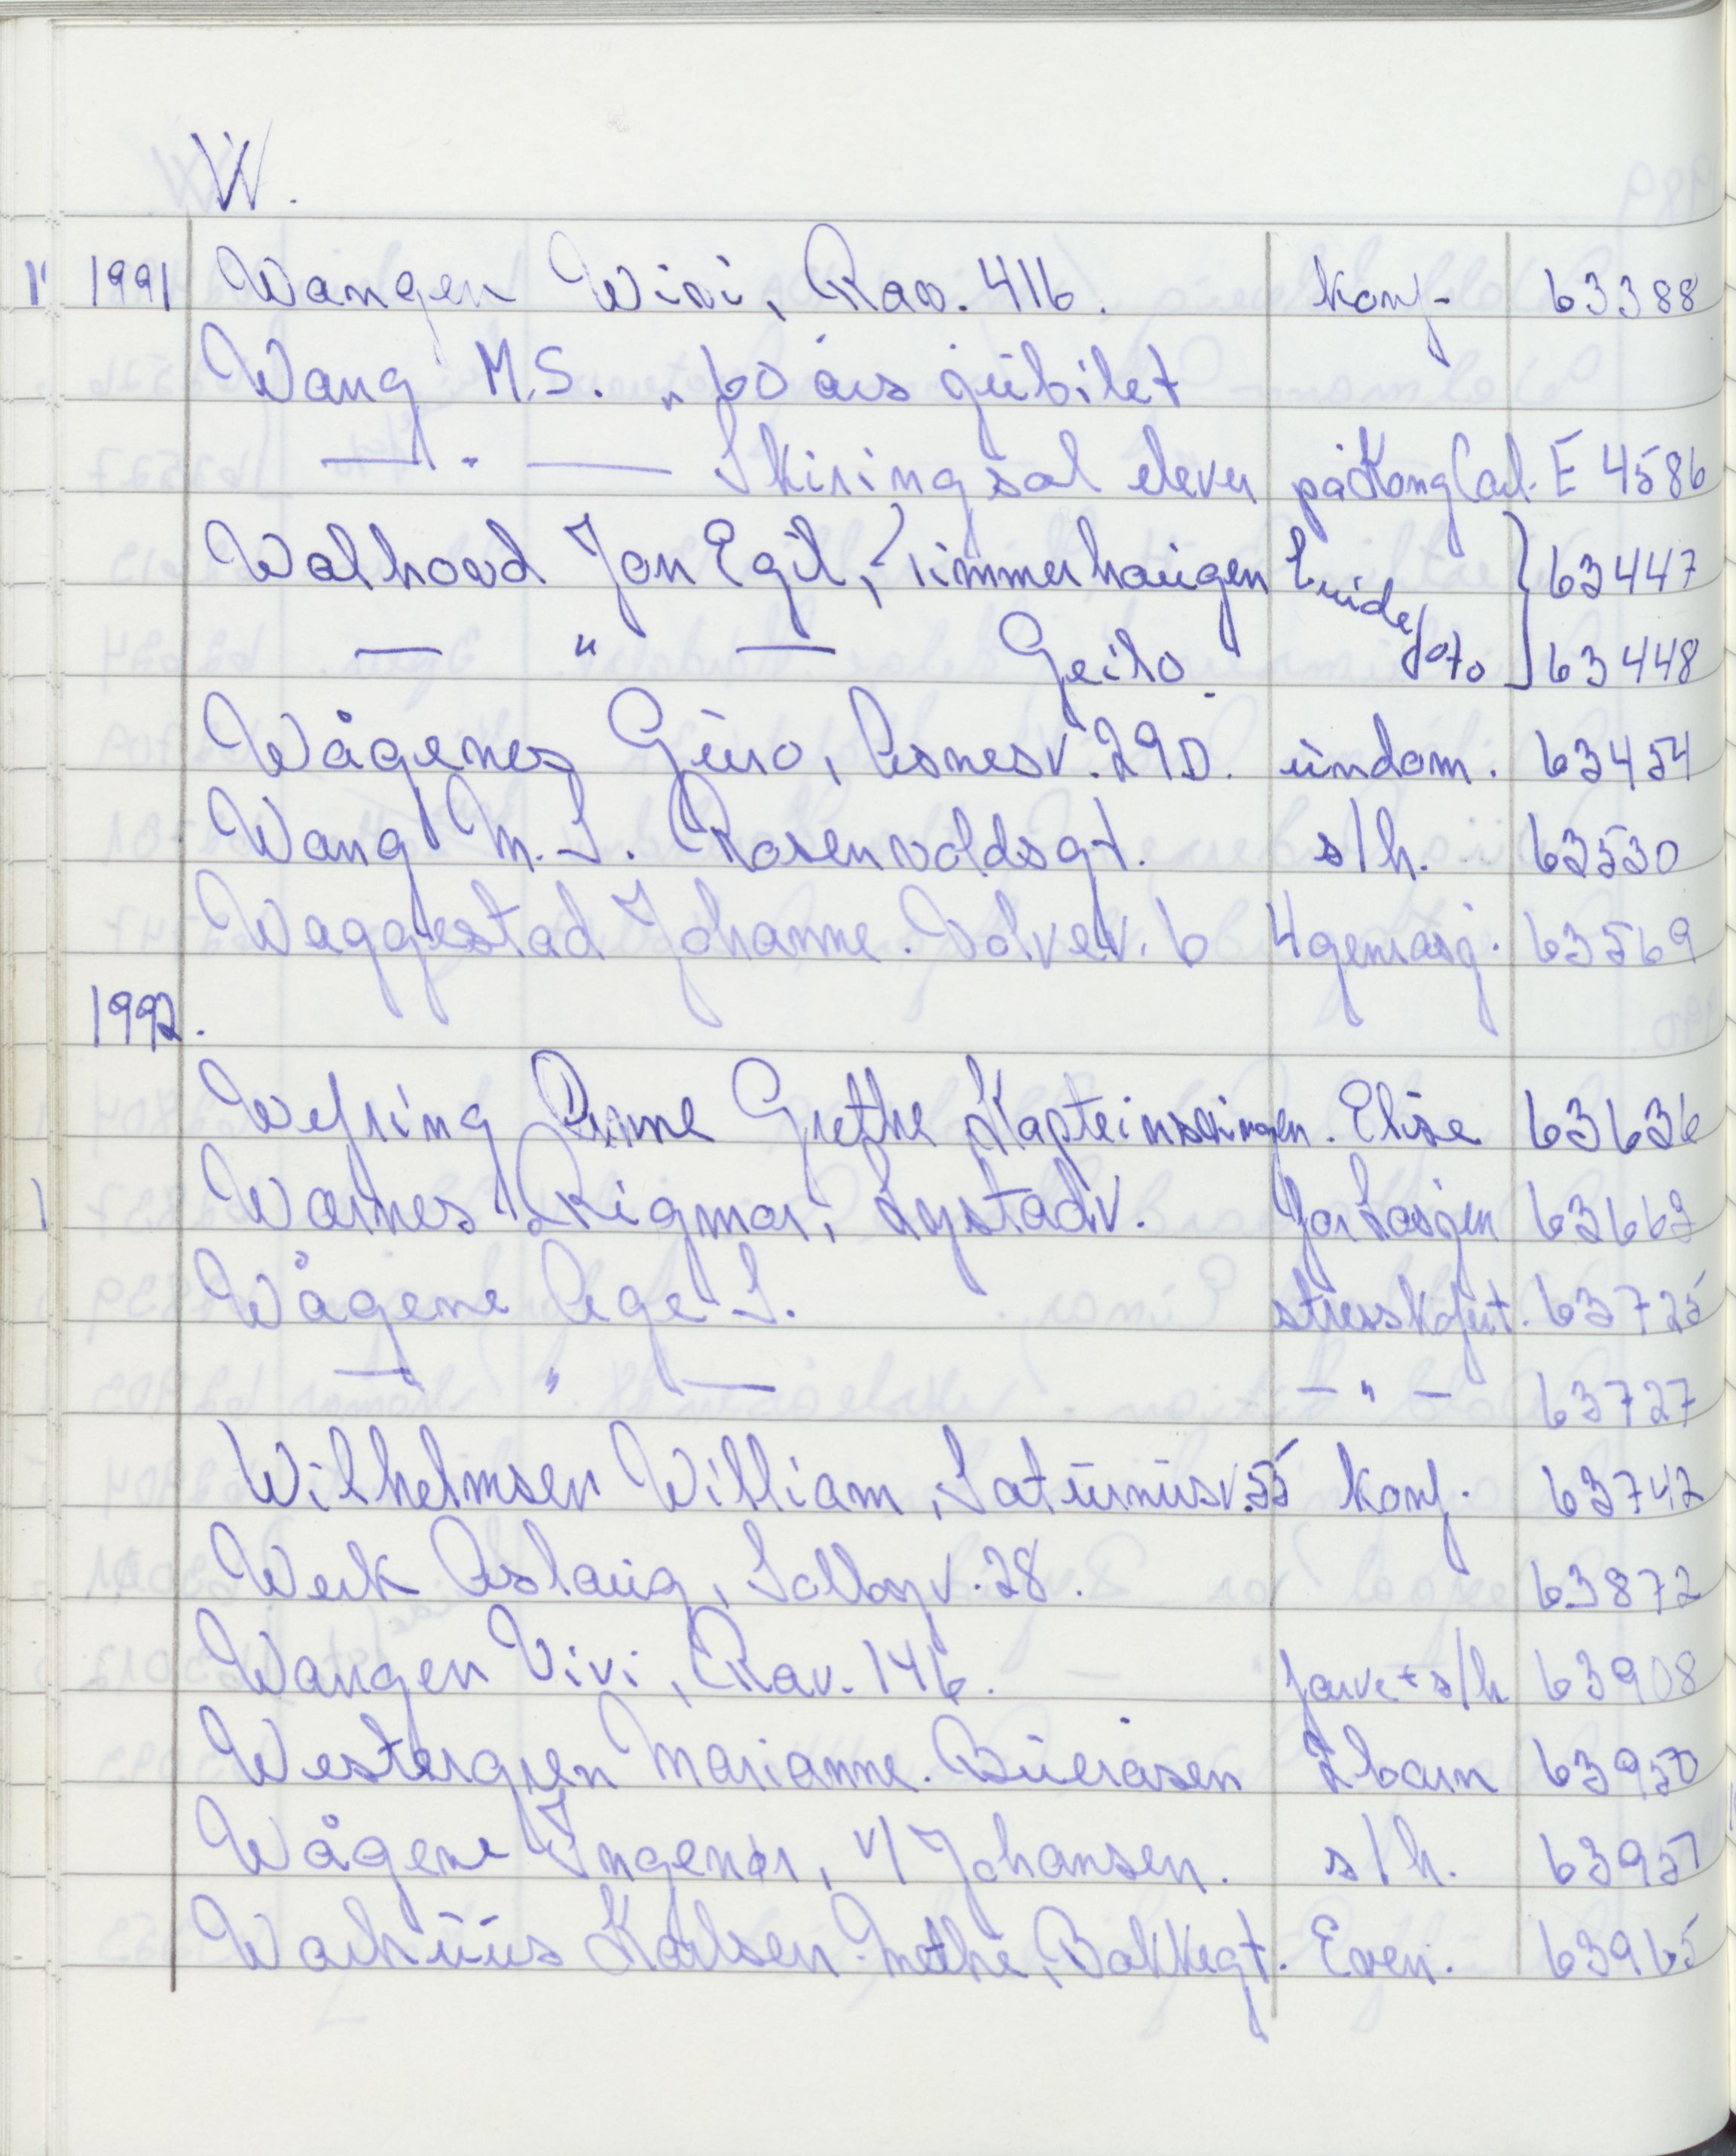 W.
1991 Wangen Wivi, Rav. 416. konf. 63388
Wang M.S. "60 års jubilet
— " — Skiringsal elever på Kong Carl. E 4586
Walhovd Jan Egil, Timmerhaugen brude 63447
— " — Geilo. foto 63448
Wågenes Guro, Asnesv. 29D. ungdom. 63454
Wang M.S. Rosenvoldsgt. s/h. 63530
Waggestad Johanne. Solvev. 6 4 generasj. 63569
1992.
Wefring Anne Grethe Kapteinsvingen. Elise 63636
Warnes Rigmor, Lystadv. 6366
Wågene Age S. 63725
— " — — " — 63727
Wilhelmsen William, Saturnusv. 55 konf. 63742
Werk Aslaug, 28. 63872
Wangen Vivi, Rav. 146. farve + s/h 63908
Westergren Marianne. Bueråsen 2 barn 63950
Wågene Ingener, v/ Johansen. s/h. 63957
Karlsen Grethe, Bakkegt. Even. 63965